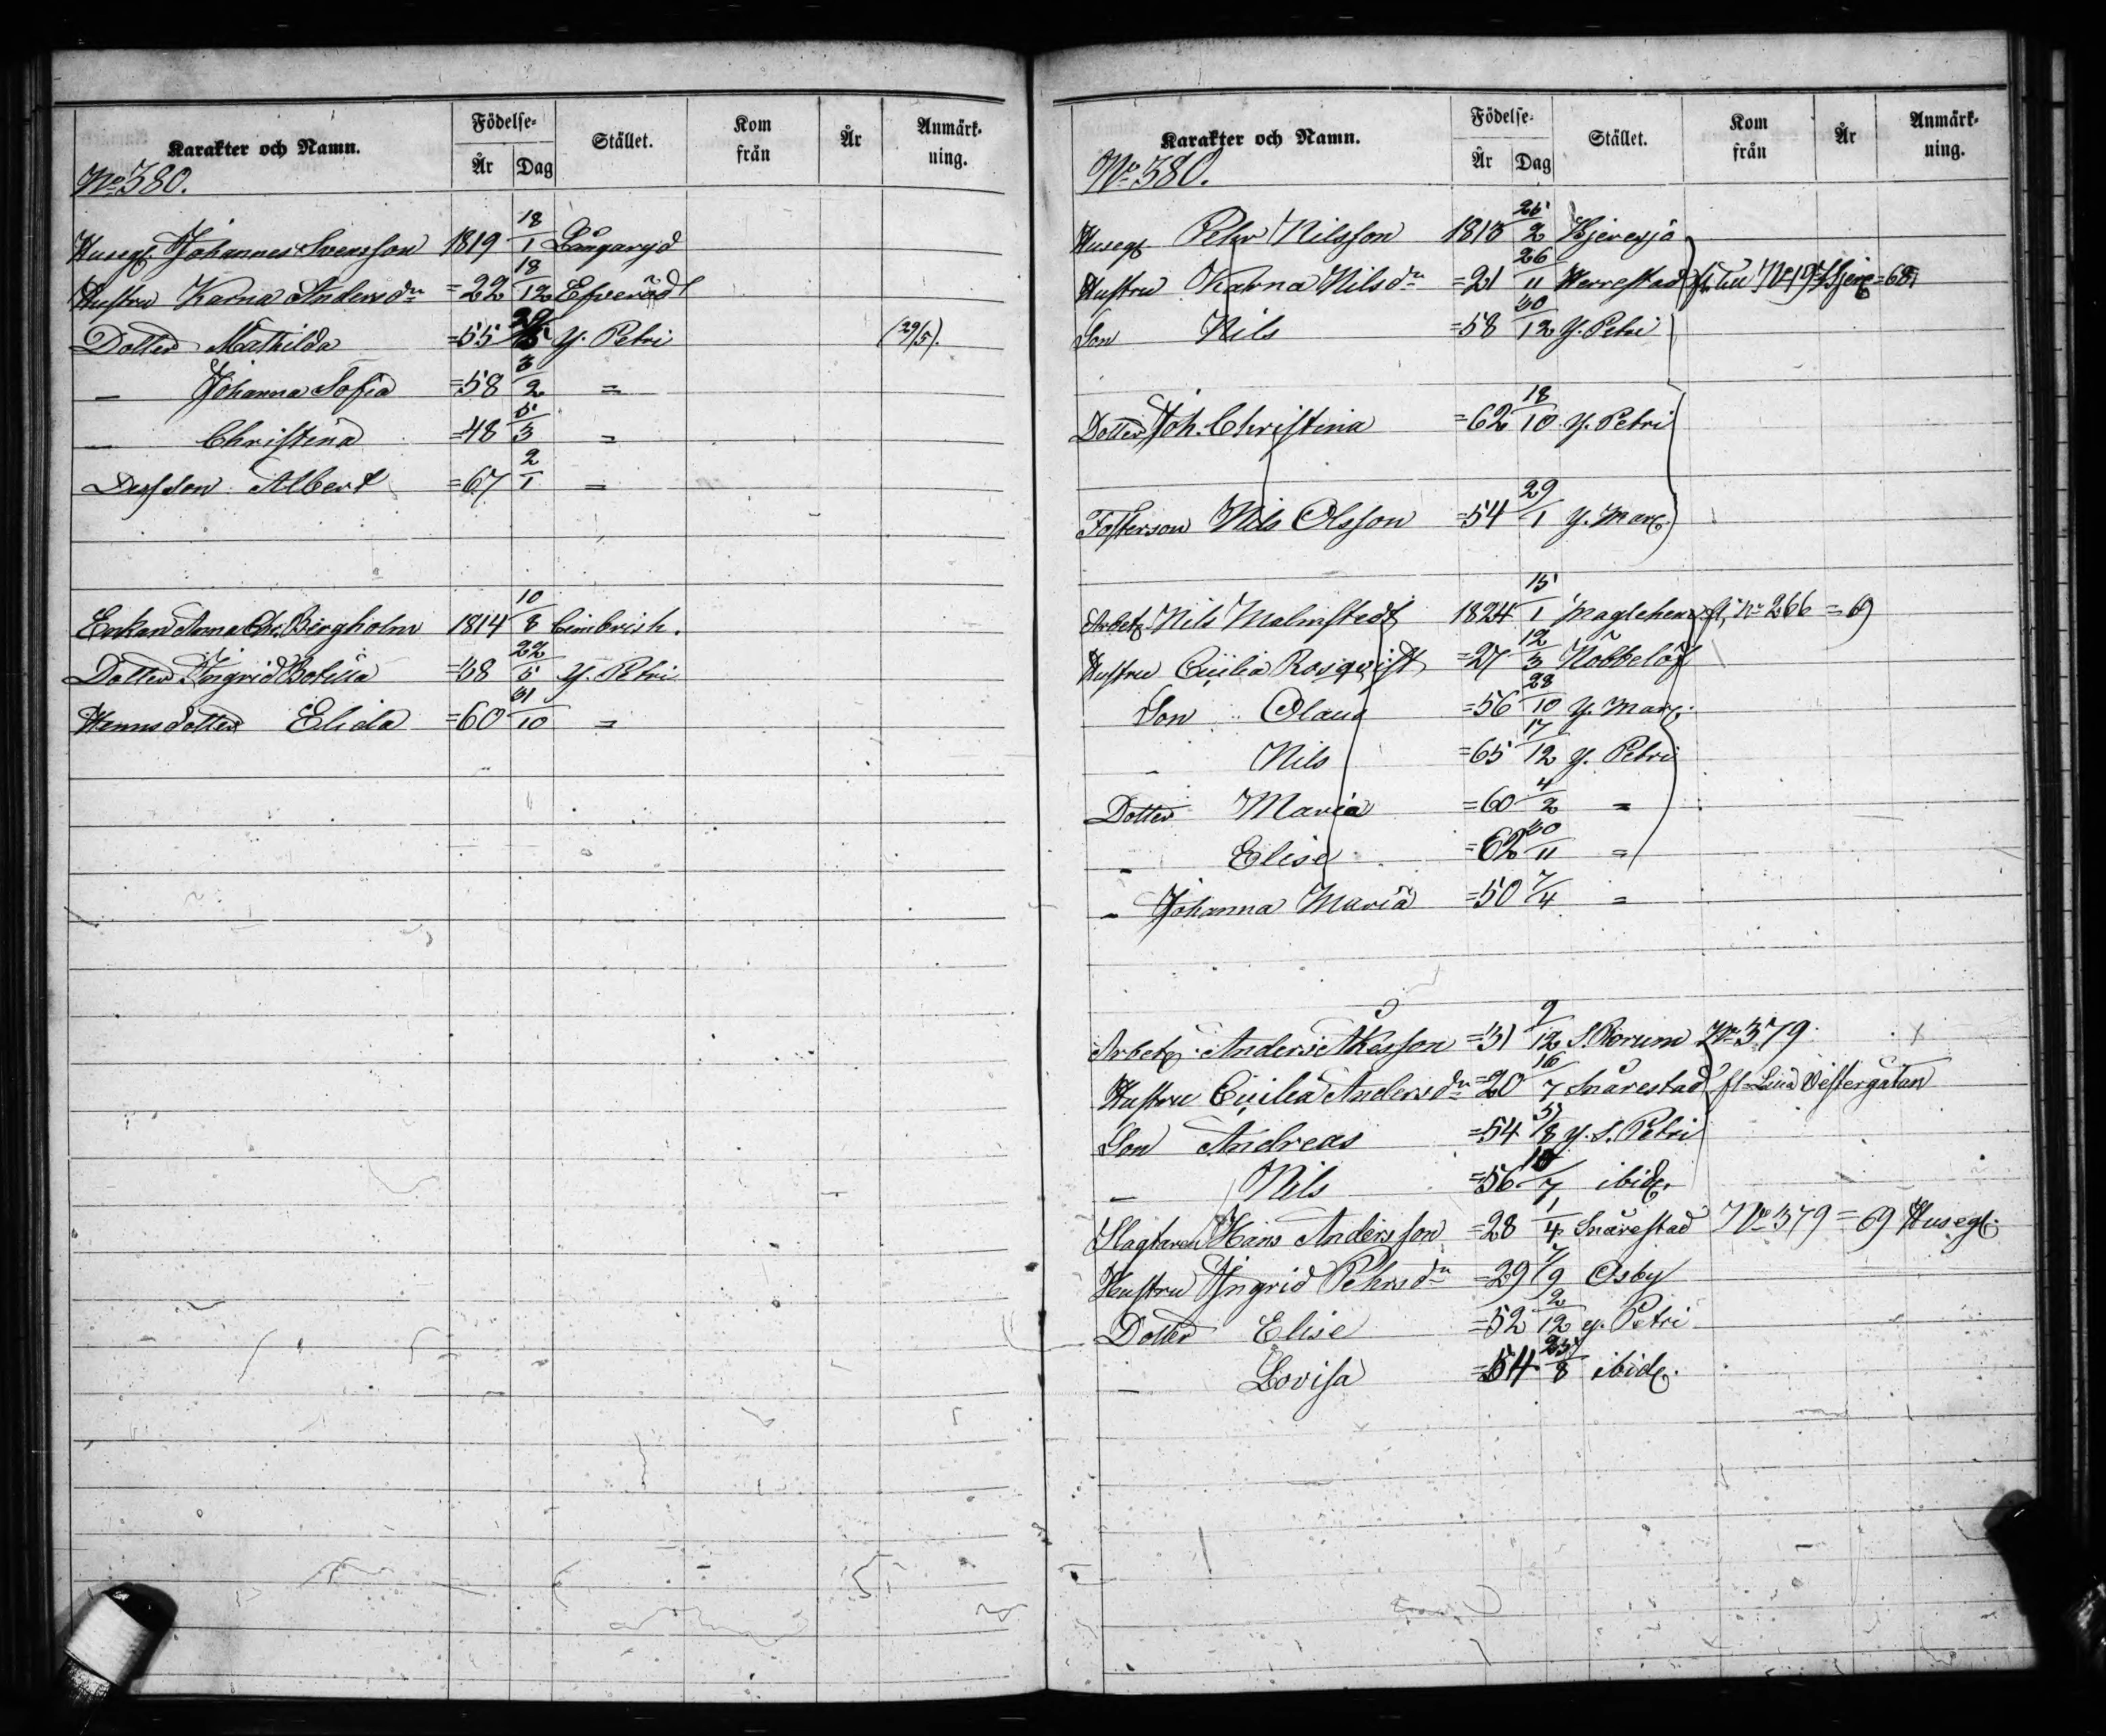 Karakter och Namn. Födelse- År Dag Stället. Kom från År Anmärkning.
No 380.
Huseg. Johannes Svensson 1819 18/1 Långaryd
Hustru Karna Andersdr =22 18/12 Efveröd
Dotter Mathilda =55 29/5 Y. Petri (29/5).
— Johanna Sofia =58 3/2 =
— Christina =48 5/3 =
Dess son Albert =67 2/1 =
Enkan Anna Chr. Bergholm 1814 10/8 Cimbrish.
Dotter Ingrid Botilla =38 22/5 Y. Petri
Hennes dotter Elida =60 31/10 =
Karakter och Namn. Födelse- År Dag Stället. Kom från År Anmärkning.
No 380.
Husegr Pehr Nilsson 1813 25/2 Hjeresjö
Hustru Karna Nilsdr =21 26/11 Herrestad fl. till No 19 =68
Son Nils =58 30/12 Y. Petri
Dotter Joh. Christina =62 18/10 Y. Petri
Fosterson Nils Olsson =54 29/1 Y. Mar.
Arbet. Nils Malmstedt 1824 15/1 Maglehem fl. No 266 =69
Hustru Cecilia Rosqvist =27 12/3 Nöbbelöf
Son Olaus =56 28/10 Y. Mar.
– Nils =65 17/12 Y. Petri
Dotter Maria =60 4/2 =
– Elise =62 30/11 =
– Johanna Maria =50 7/4 =
Arbet. Anders Åkesson =31 9/12 S. Rorum No 379.
Hustru Cecilia Andersdr =20 16/7 Snårestad fl. Westergatan
Son Andreas =54 31/8 Y. S. Petri
— Nils =56 10/7 ibid.
Slagtaren Hans Andersson =28 1/4 Snårestad No 379 =69 Husegr.
Hustru Ingrid Pehrsdr =29 7/9 Osby
Dotter Elise =52 2/12 Y. Petri
— Lovisa =54 25/8 ibid.